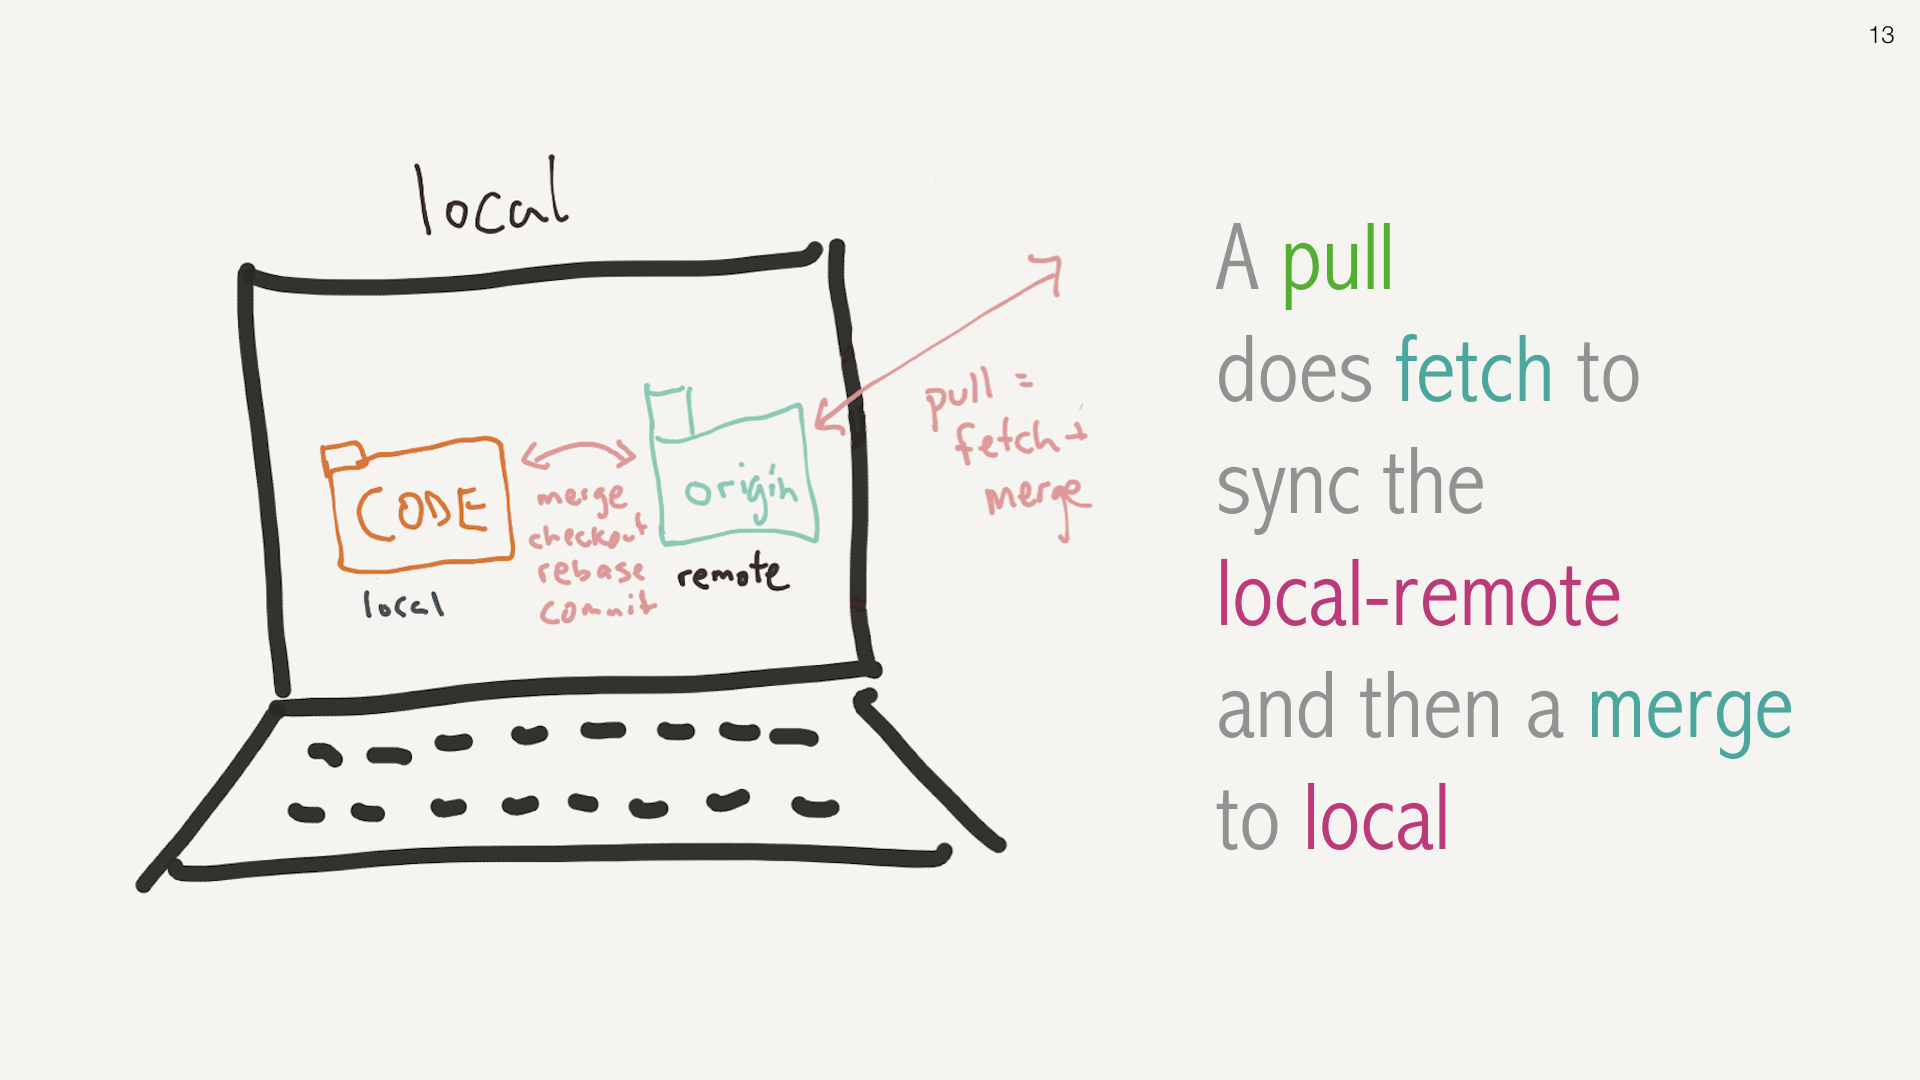 13
local
CODE
local
merge
checkout
rebase
commit
origin
remote
pull =
fetch +
merge
A pull
does fetch to
sync the
local-remote
and then a merge
to local